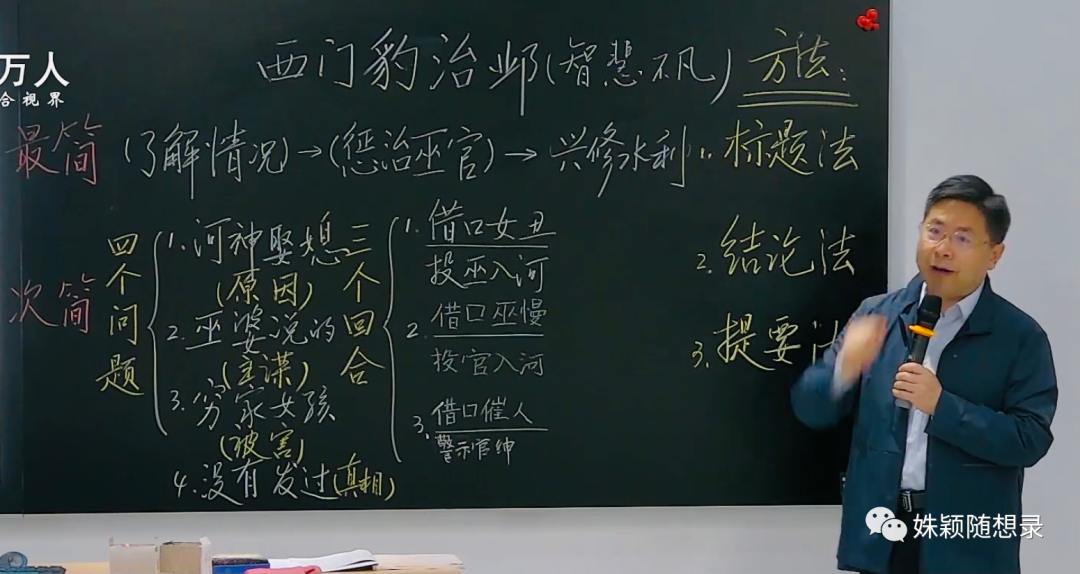 万人
合视界
西门豹治邺(智慧不凡) 方法:
最简 (了解情况)→(惩治巫官)→兴修水利 1. 标题法
次简
四个问题
1. 河神娶媳
(原因)
2. 巫婆说的
(主谋)
3. 穷家女孩
(被害)
4. 没有发过(真相)
三个回合
1. 借口女丑
投巫入河
2. 借口巫慢
投官入河
3. 借口催人
警示官绅
2. 结论法
3. 提要法
姝颖随想录